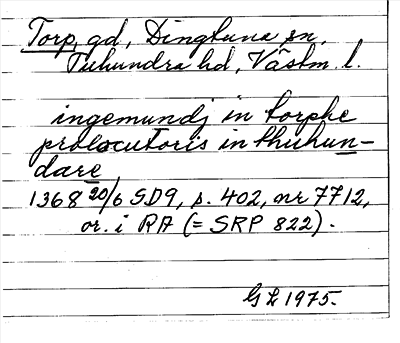 Torp, gd, Dingtuna sn,
Tuhundra hd, Västm. l.
ingemundj in torphe
prolocutoris in thuhun-
dare
1368 20/6 SD9, s. 402, nr 7712,
or. i RA (= SRP 822).
GL 1975.